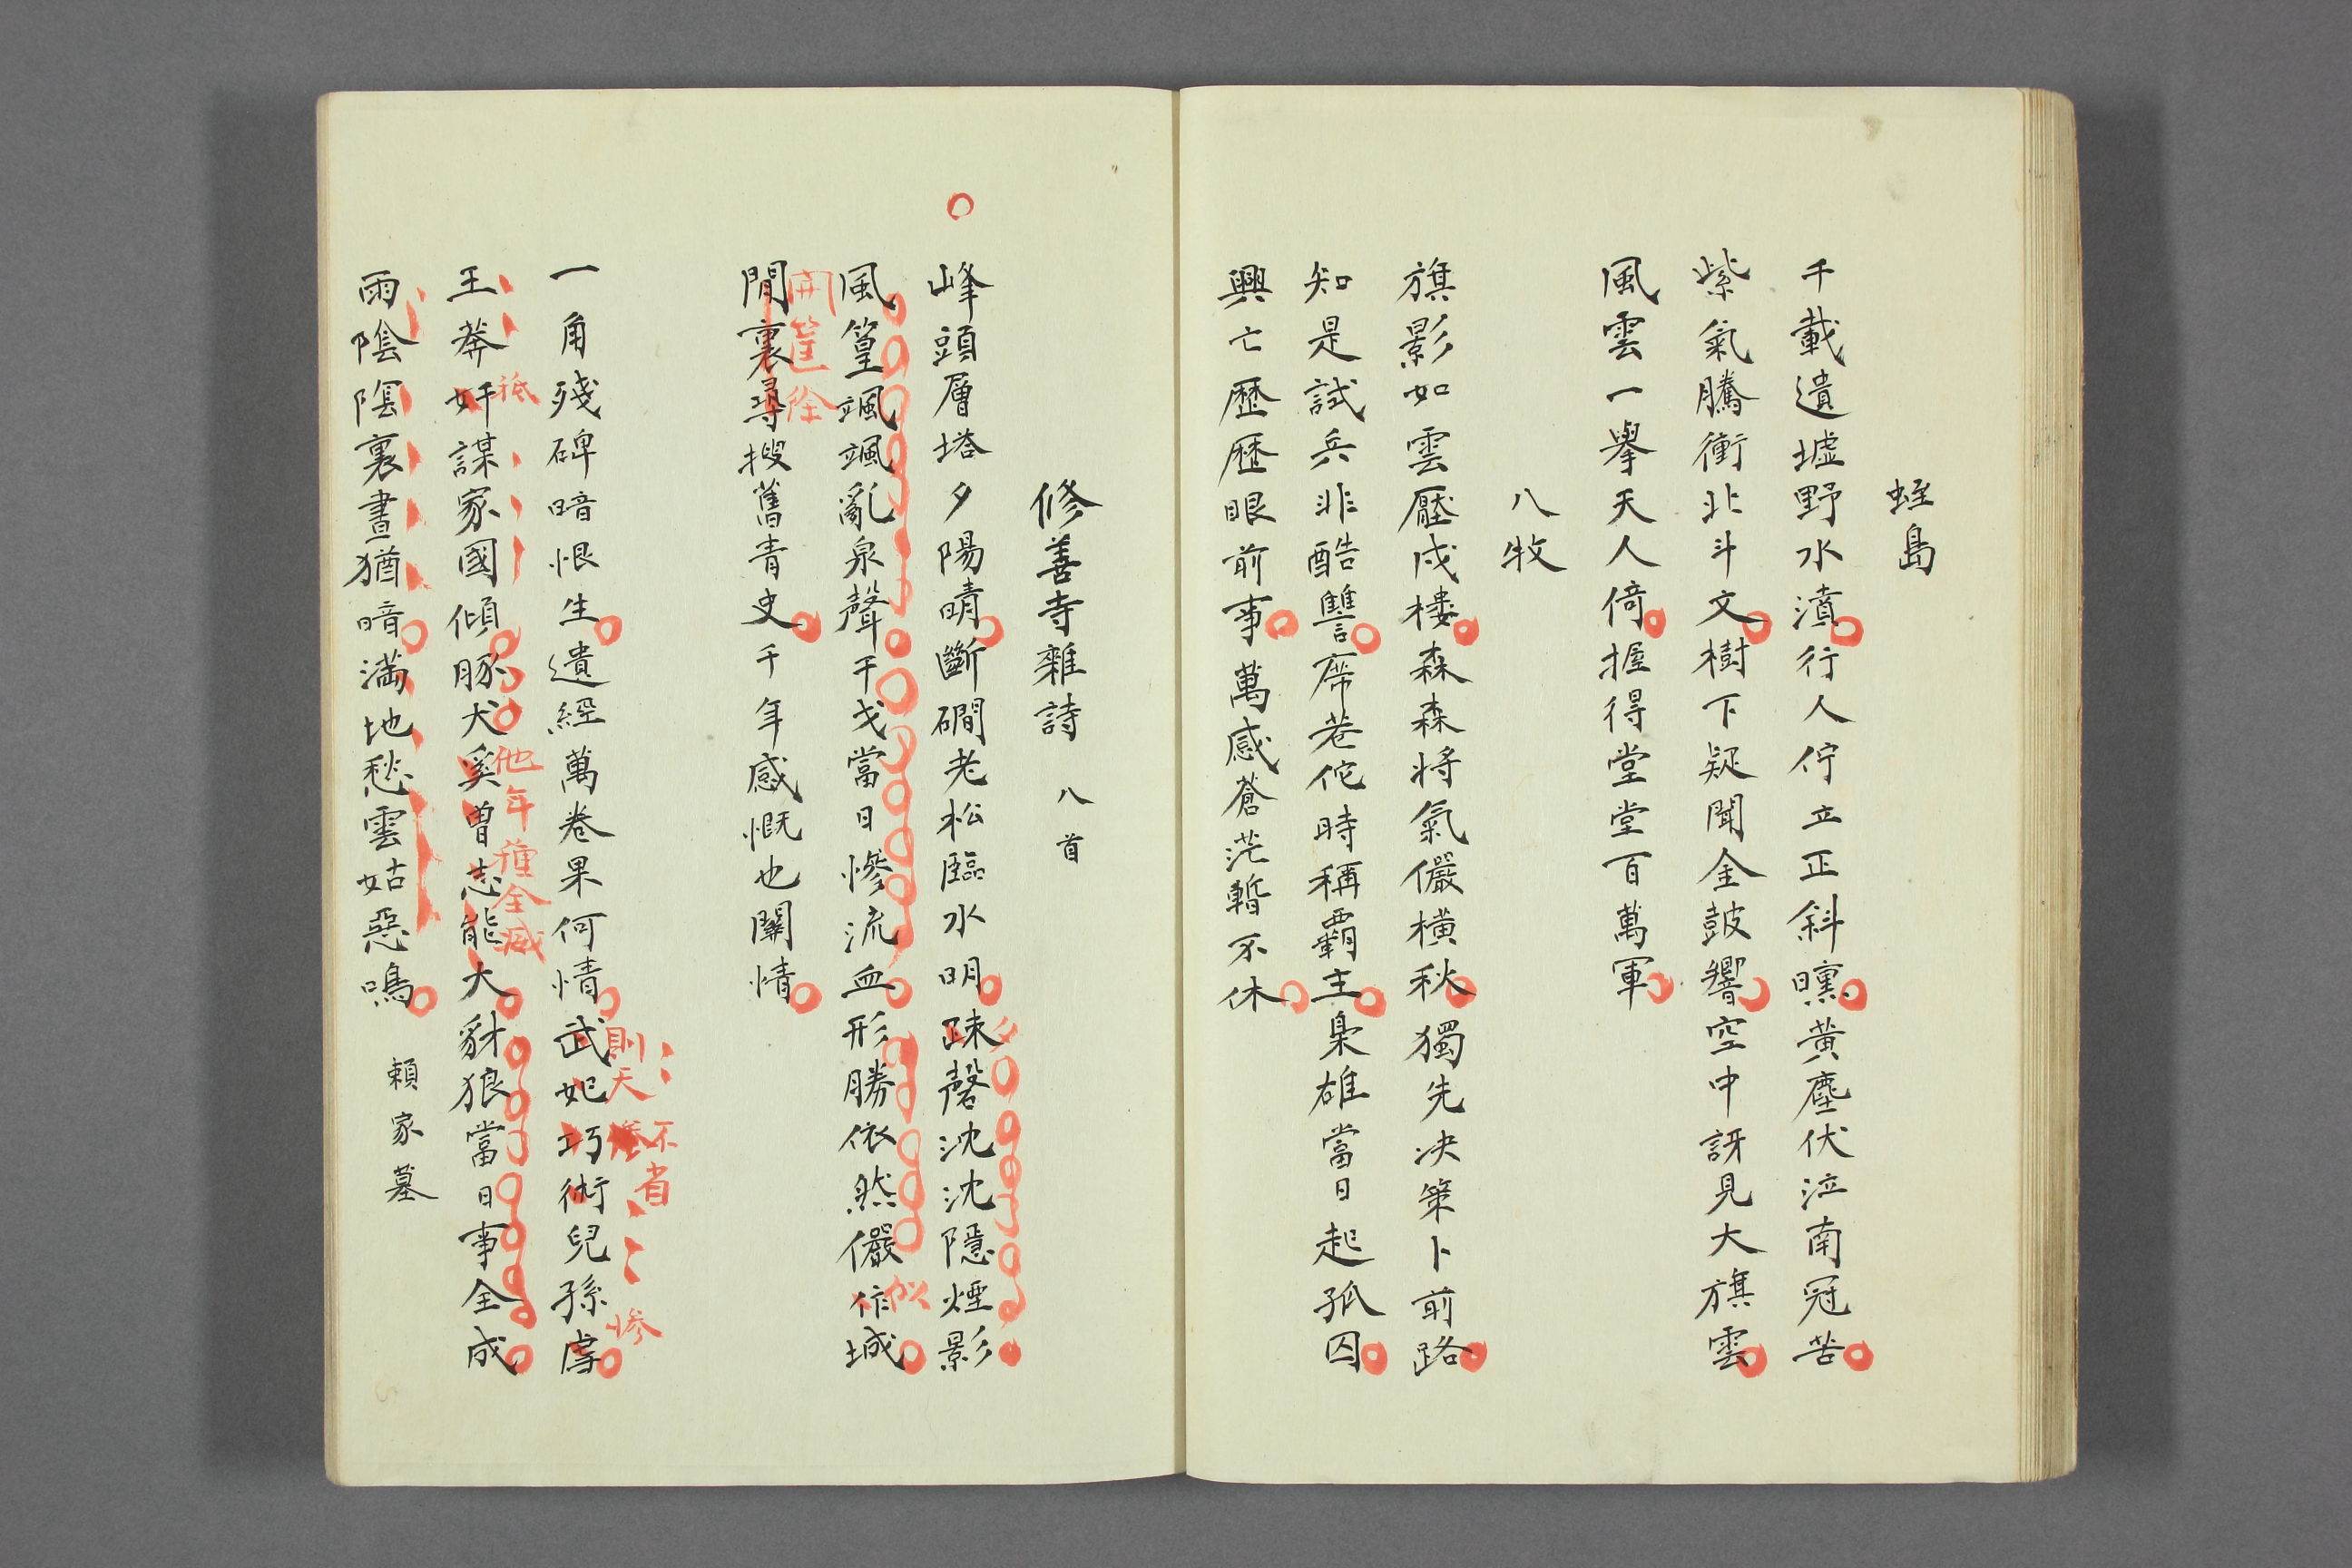 蛭島
千載遺墟野水濆行人佇立正斜曛黃塵伏泣南冠苦
紫氣騰衝北斗文樹下疑聞金鼓響空中訝見大旗雲
風雲一擧天人倚握得堂堂百萬軍
八牧
旗影如雲壓戍樓森森将氣儼橫秋獨先決策卜前路
知是試兵非酷讐席巷佗時稱霸主梟雄當日起孤囚
興亡歴歴眼前事萬感蒼茫暫不休
修善寺雜詩 八首
峰頭層塔夕陽晴斷磵老松臨水明疎磬沈沈隱煙影
風篁颯颯亂泉聲干戈當日慘流血形勝依然儼作城
似
閒裏尋搜舊青史千年感慨也關情
開篋
一角殘碑暗恨生遺經萬卷果何情武妃巧術兒孫虐
則天
不省
慘
王莽奸謀家國傾豚犬奚曽志能大豺狼當日事全成
他年種全滅
雨陰陰裏晝猶暗満地愁雲姑惡鳴
頼家墓